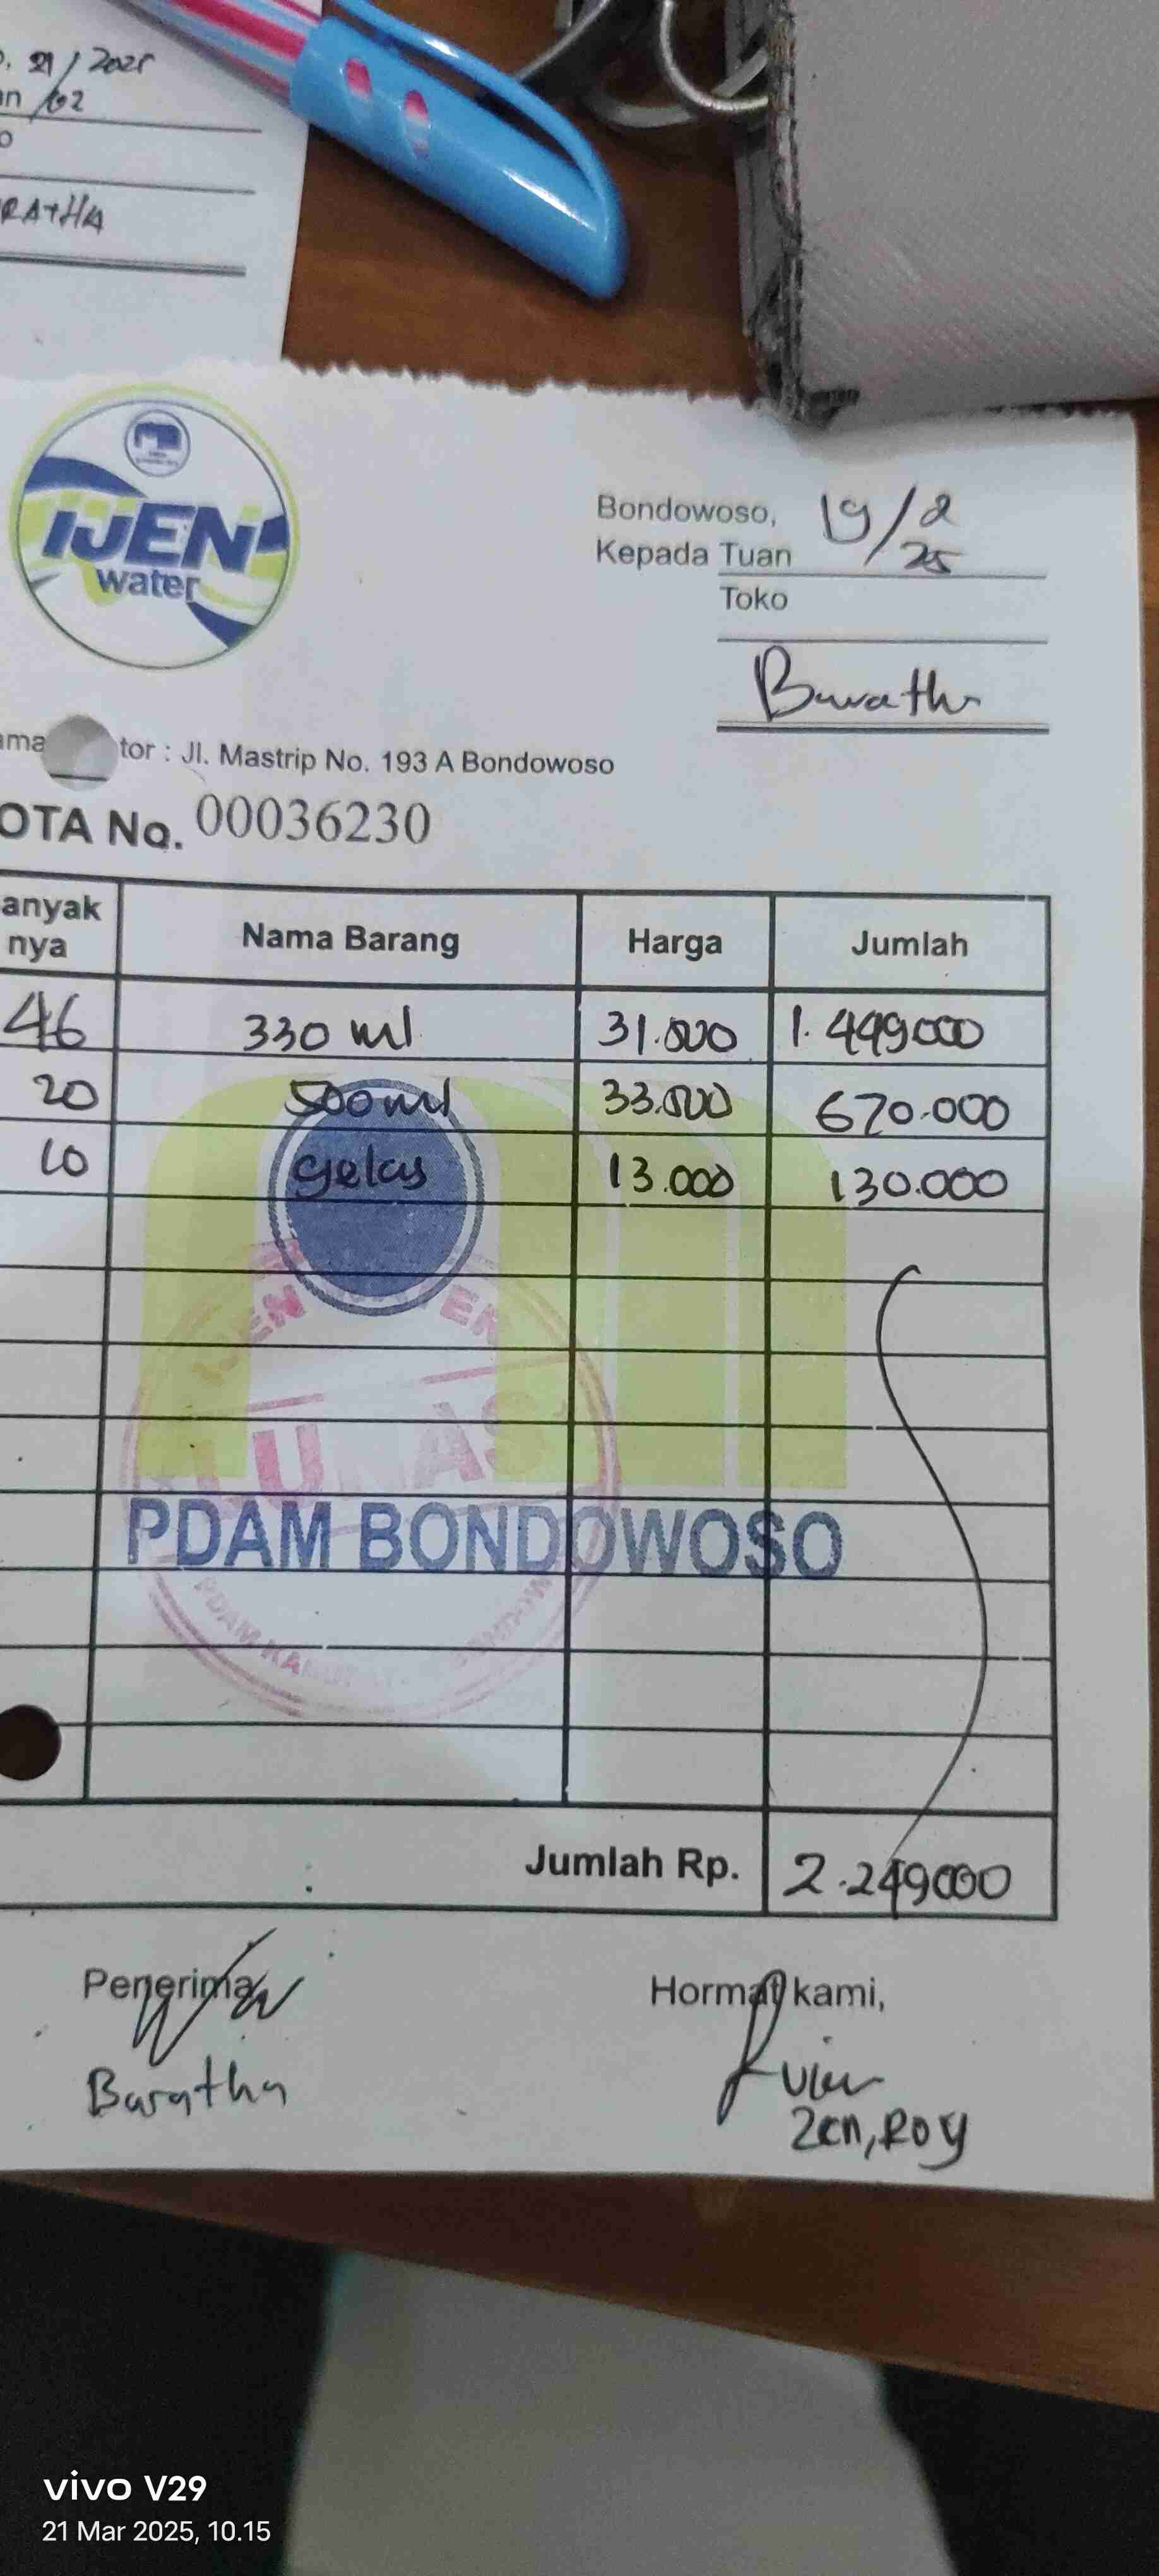 21/2025
/02
RATHA
IJEN
water
Bondowoso, 19/2
25
Kepada Tuan
Toko
Buratha
tor : Jl. Mastrip No. 193 A Bondowoso
OTA No. 00036230
anyak nya Nama Barang Harga Jumlah
46 330 ml 31.500 1.449000
20 500 ml 33.500 670.000
10 gelas 13.000 130.000
IJEN WATER
LUNAS
PDAM BONDOWOSO
PDAM
Jumlah Rp. 2.249000
Penerima Hormat kami,
Baratha
Zen, ROY
vivo V29
21 Mar 2025, 10.15